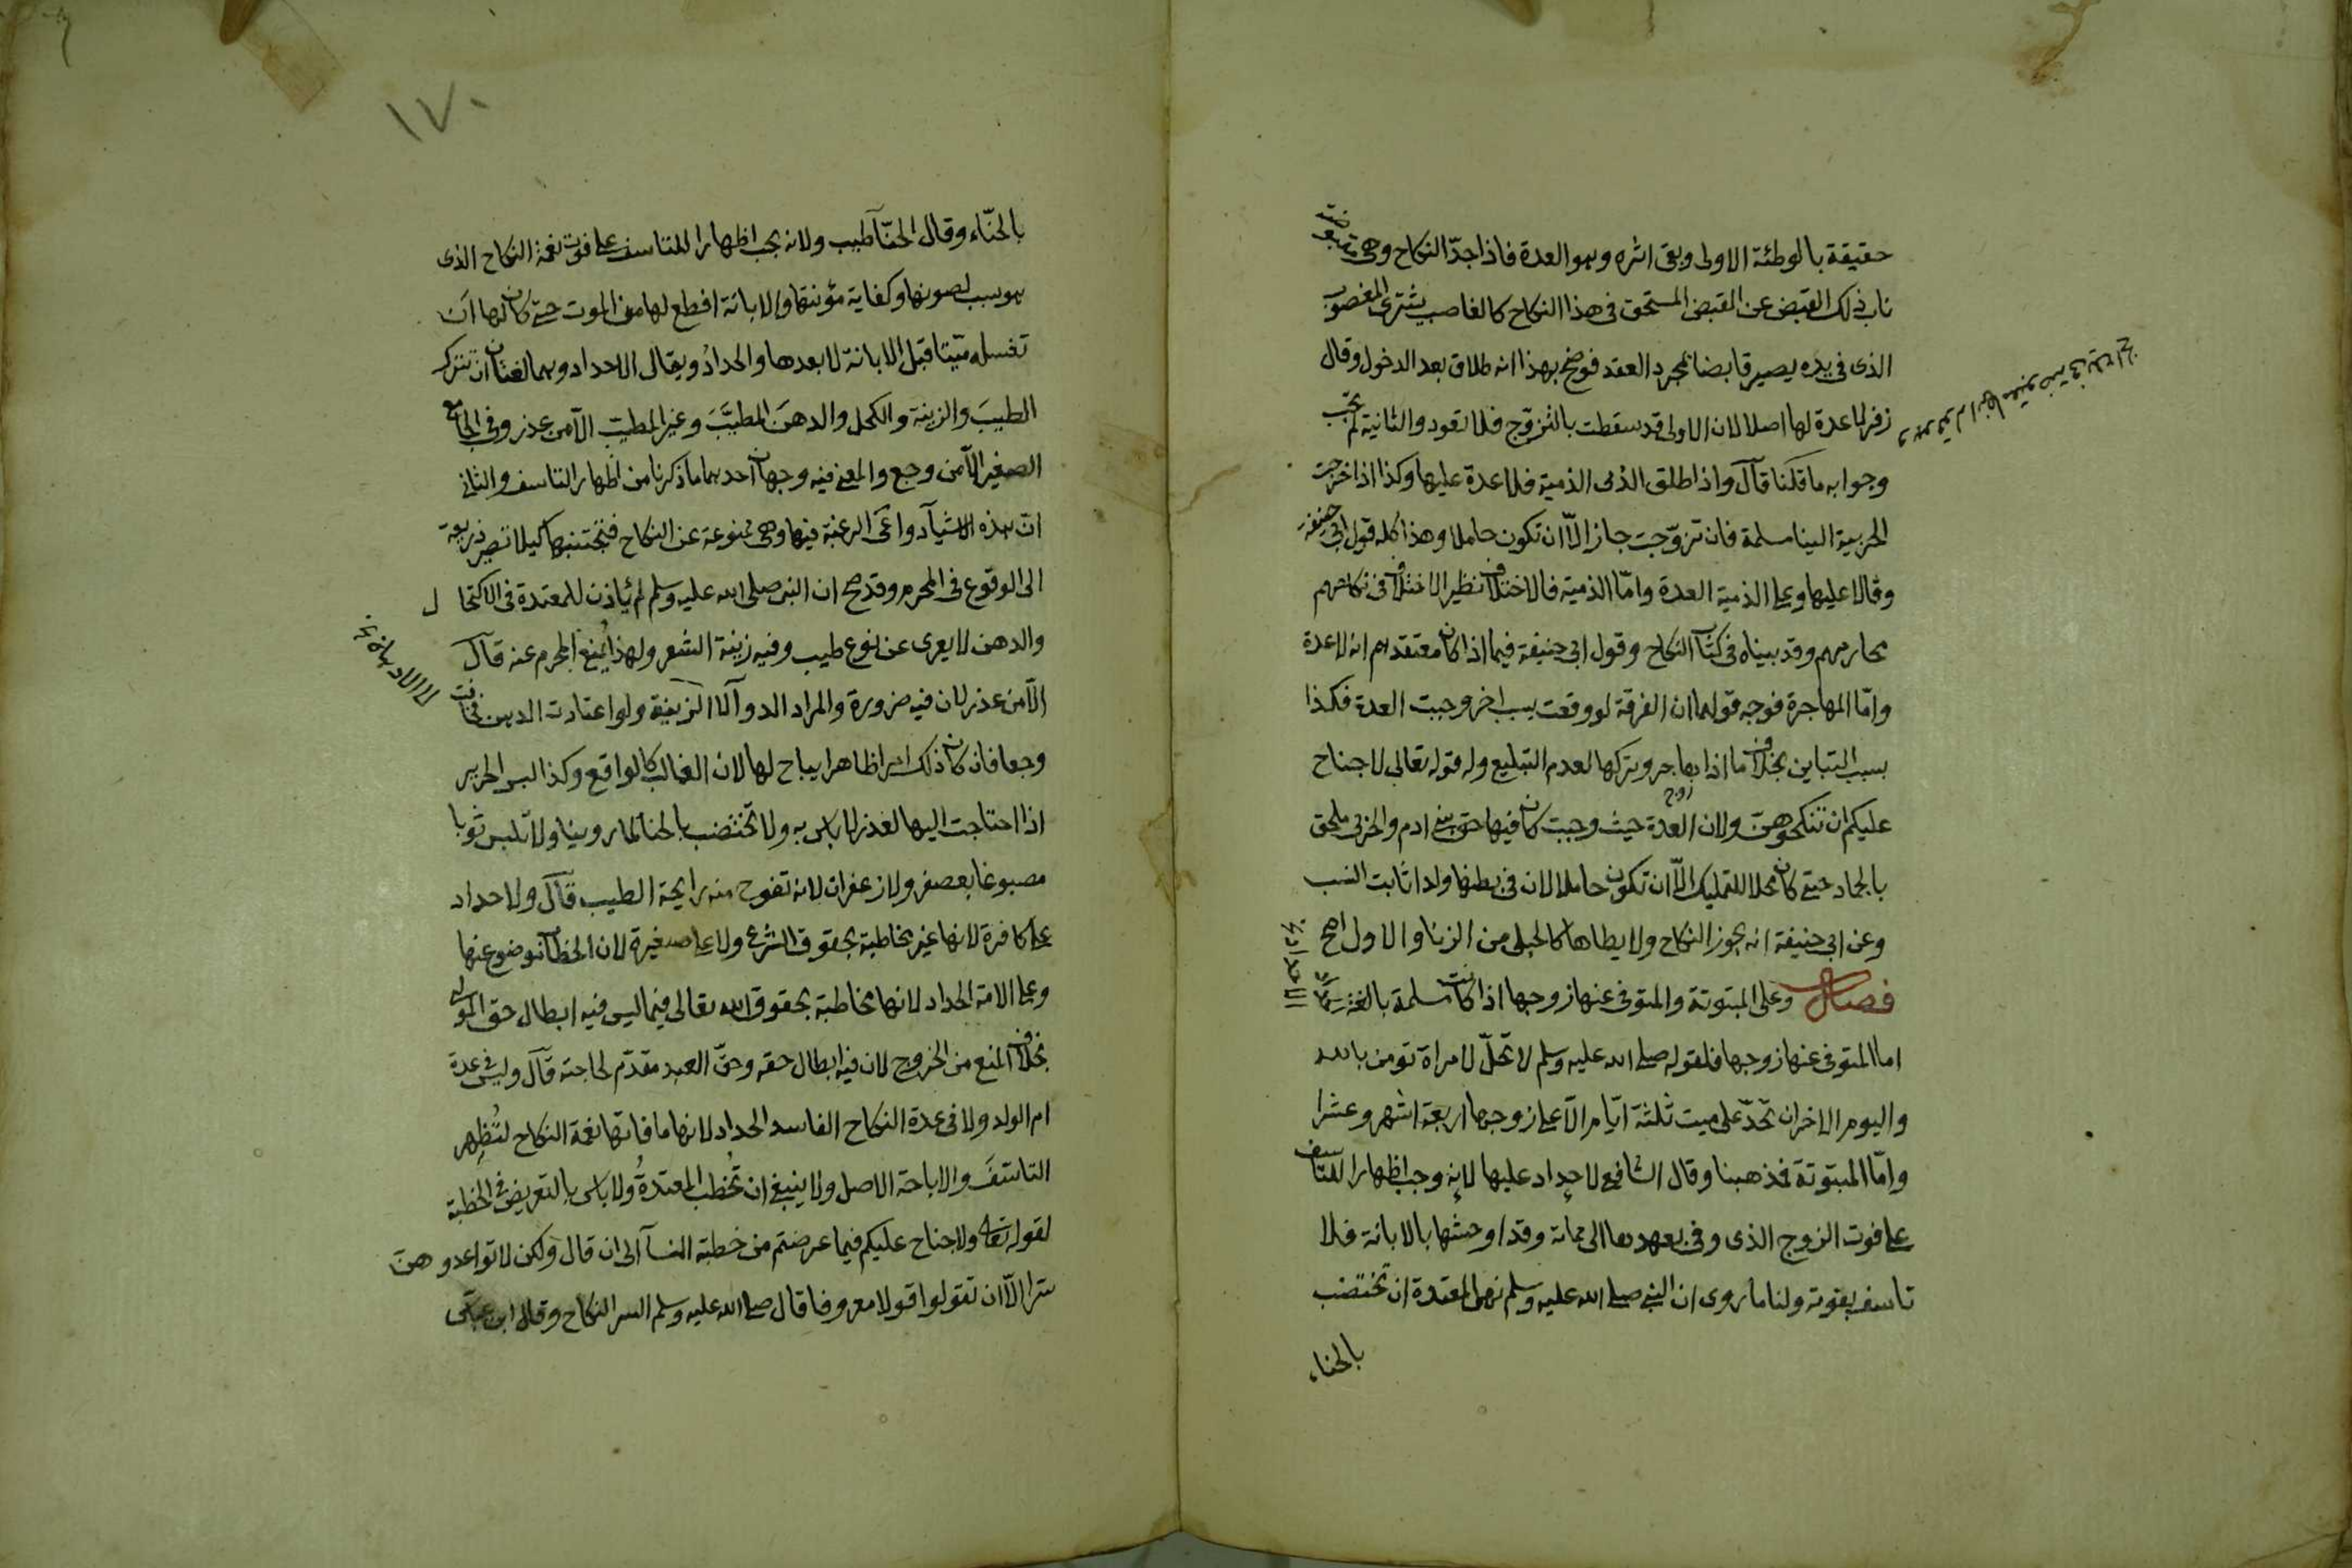 حقيقة بالوطئة الاولى وبقى اثره وهو العدة فاذا جدّ النكاح وهى مقبوضة
ناب ذلك القبض عن القبض المستحق فى هذا النكاح كالغاصب يشترى المغصوب
الذى فى يده يصير قابضا بمجرد العقد فوضح بهذا انه طلاق بعد الدخول وقال
زفر لا عدة لها اصلا لان الاولى قد سقطت بالتزوّج فلا تعود والثانية لم تجب
وجوابه ما قلنا قال واذا طلق الذمى الذمية فلا عدة عليها وكذا اذا خرجت
الحربية الينا مسلمة فان تزوّجت جاز الّا ان تكون حاملا وهذا كله قول ابى حنيفة
وقالا عليها وعلى الذمية العدة وامّا الذمية فالاختلاف نظير الاختلاف فى نكاحهم
محارمهم وقد بيناه فى كتاب النكاح وقول ابى حنيفة فيما اذا كان معتقدهم انه لا عدة
وامّا المهاجرة فوجه قولهما ان الفرقة لو وقعت بسبب اخر وجبت العدة فكذا
بسبب التباين بخلاف ما اذا هاجر وتركها لعدم التبليغ وله قوله تعالى لا جناح
عليكم ان تنكحوهنّ ولان العدة حيث وجبت كان فيها حق بنى ادم والحربى ملحق
بالجماد حتى كان محلا للتمليك الّا ان تكون حاملا لان فى بطنها ولدا ثابت النسب
وعن ابى حنيفة انه يجوز النكاح ولا يطاها كالحبلى من الزنا والاول اصح
فصل وعلى المبتوتة والمتوفى عنها زوجها اذا كانت مسلمة بالغة
اما المتوفى عنها زوجها فلقوله صلى الله عليه وسلم لا تحلّ لامراة تومن بالله
واليوم الاخر ان تحدّ على ميت ثلثة ايّام الّا على زوجها اربعة اشهر وعشرا
وامّا المبتوتة فمذهبنا وقال الشافعى لا حداد عليها لانه وجب اظهارا للتاسف
على فوت الزوج الذى وفى بعهدها الى مماته وقد اوحشها بالابانة فلا
تاسف بفوته ولنا ما روى ان النبى صلى الله عليه وسلم نهى المعتدة ان تختضب
بالحناء
١٧٠
بالحنّاء وقال الحنّآ طيب ولانه يجب اظهارا للتاسف على فوت نعمة النكاح الذى
هو سبب لصونها وكفاية مؤنتها والابانة اقطع لها من الموت حتى كان لها ان
تغسله ميتا قبل الابانة لا بعدها والحداد ويقال الاحداد وهما لغتان ان تترك
الطيبَ والزينة والكحل والدهنَ المطيَّبَ وغير المطيب الّا من عذر وفى الجامع
الصغير الّا من وجع والمعنى فيه وجهان احدهما ما ذكرنا من اظهار التاسف والثانى
انّ هذه الاشيآ دواعى الرغبة فيها وهى ممنوعة عن النكاح فتجتنبها كيلا تصير ذريعة
الى الوقوع فى المحرم وقد صح ان النبى صلى الله عليه وسلم لم ياذن للمعتدة فى الاكتحال
والدهن لا يعرى عن نوع طيب وفيه زينة الشعر ولهذا يُمنع المحرم عنه قال
الّا من عذر لان فيه ضرورة والمراد الدوآ لا الزينة ولو اعتادت الدهن فخافت
وجعا فان كان ذلك امرا ظاهرا يباح لها لان الغالب كالواقع وكذا لبس الحرير
اذا احتاجت اليها لعذر لا باس به ولا تختضب بالحنآ لما روينا ولا تلبس ثوبا
مصبوغا بعصفر ولا زعفران لانه تفوح منه رايحة الطيب قال ولا حداد
على كافرة لانها غير مخاطبة بحقوق الشرع ولا على صغيرة لان الخطاب موضوع عنها
وعلى الامة الحداد لانها مخاطبة بحقوق الله تعالى فيما ليس فيه ابطال حق المولى
بخلاف المنع من الخروج لان فيه ابطال حقه وحقّ العبد مقدّم لحاجته قال وليس فى عدة
ام الولد ولا فى عدة النكاح الفاسد الحداد لانها ما فاتها نعمة النكاح لتُظهر
التاسّفَ والاباحة الاصل ولا ينبغى ان تُخطب المعتدةُ ولا باس بالتعريض فى الخطبة
لقوله تعالى ولا جناح عليكم فيما عرضتم من خطبة النسآ الى ان قال ولكن لا تواعدوهنّ
سرا الّا ان تقولوا قولا معروفا قال صلى الله عليه وسلم السر النكاح وقال ابن عباس